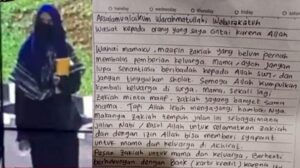 Assalamualaikum Warahmatullahi Wabarakatuh
Wasiat kepada orang yang saya cintai karena Allah
Wahai mamaku, maafin zakiah yang belum pernah
membalas pemberian keluarga. Mama sayang Jangan
lupa senantiasa beribadah kepada Allah
Jangan tinggalkan sholat. Semoga Allah kumpulkan
kembali keluarga di surga. Mama, sekali lagi
zakiah minta maaf. Zakiah sayang banget sama
mama. Tapi Allah lebih menyayangi
Makanya zakiah tempuh jalan ini sebagaimana
Jalan Nabi / Rasul Allah untuk selamatkan zakiah
dan dengan izin Allah bisa memberi syafaat
untuk mama dan keluarga di Akhirat.
Pesan zakiah untuk mama dan keluarga, berhenti
berhubungan dengan bank (kartu kredit)